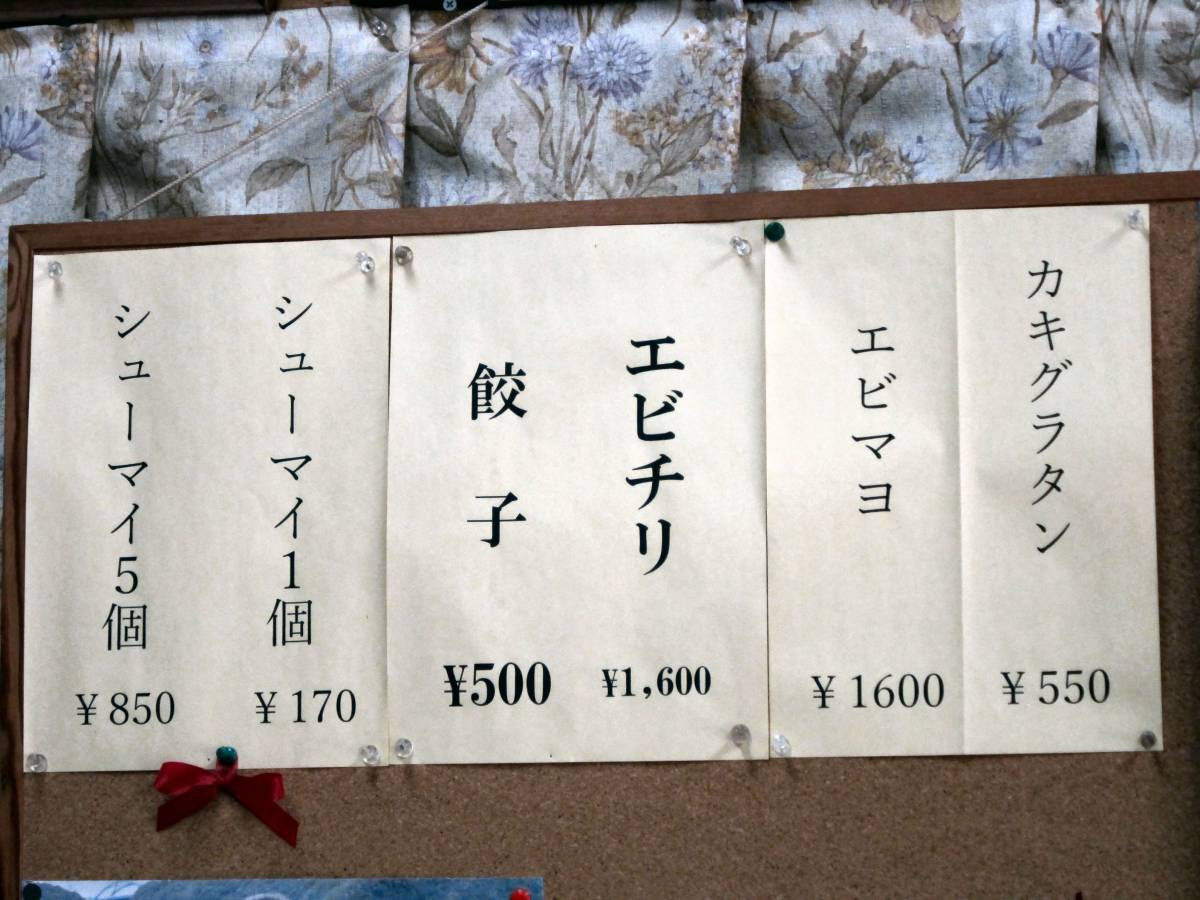 カキグラタン
¥550
エビマヨ
¥1600
エビチリ
¥1,600
餃子
¥500
シューマイ1個
¥170
シューマイ5個
¥850